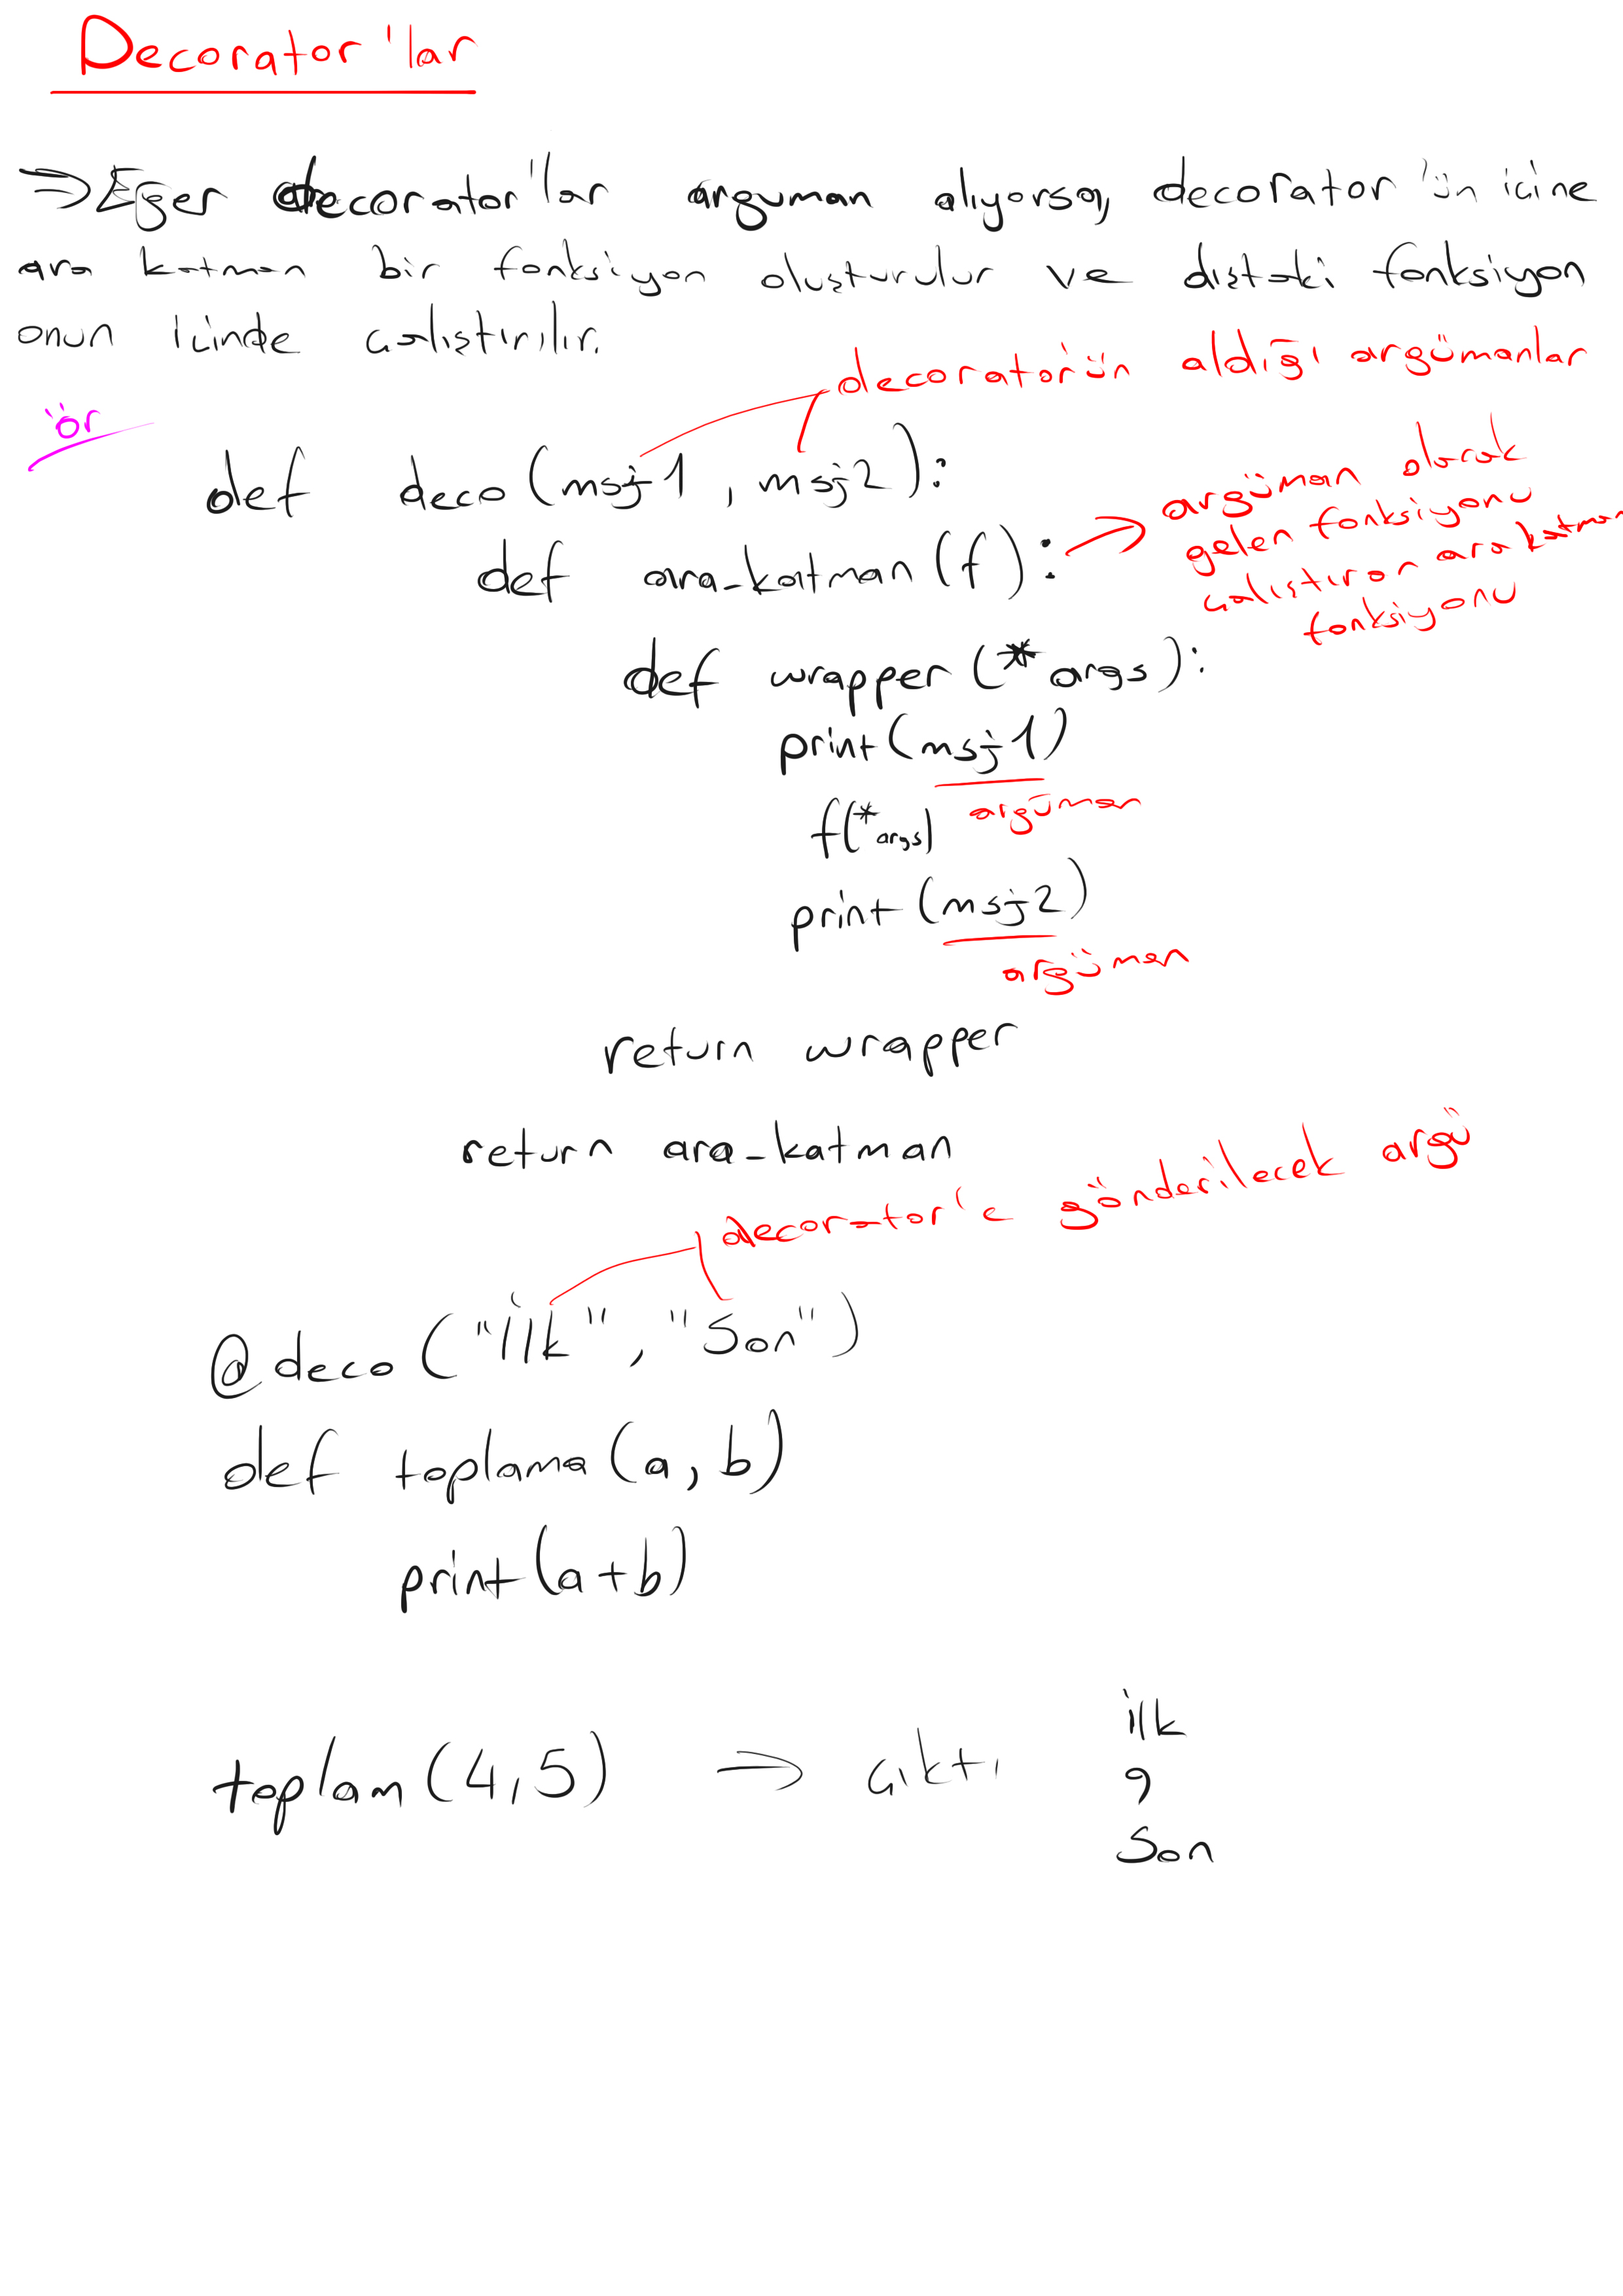 Decorator'lar
⇒ Eğer decorator'lar arguman alıyorsa, decorator'ün icine
ara katman bir fonksiyon olusturulur ve dıstaki fonksiyon
onun icinde calıstırılır.
decoratörün aldığı argümanlar
ör
def deco (msj1, msj2):
def ara_katman (f): → argüman olarak
gelen fonksiyonu
calıstıran ara katman
fonksiyonu
def wrapper (*args):
print (msj1)
argüman
f(*args)
print (msj2)
argüman
return wrapper
return ara_katman
decorator'e gönderilecek argü
@deco ("İlk", "Son")
def toplama (a, b)
print (a+b)
toplam (4,5) → cıktı
ilk
9
Son